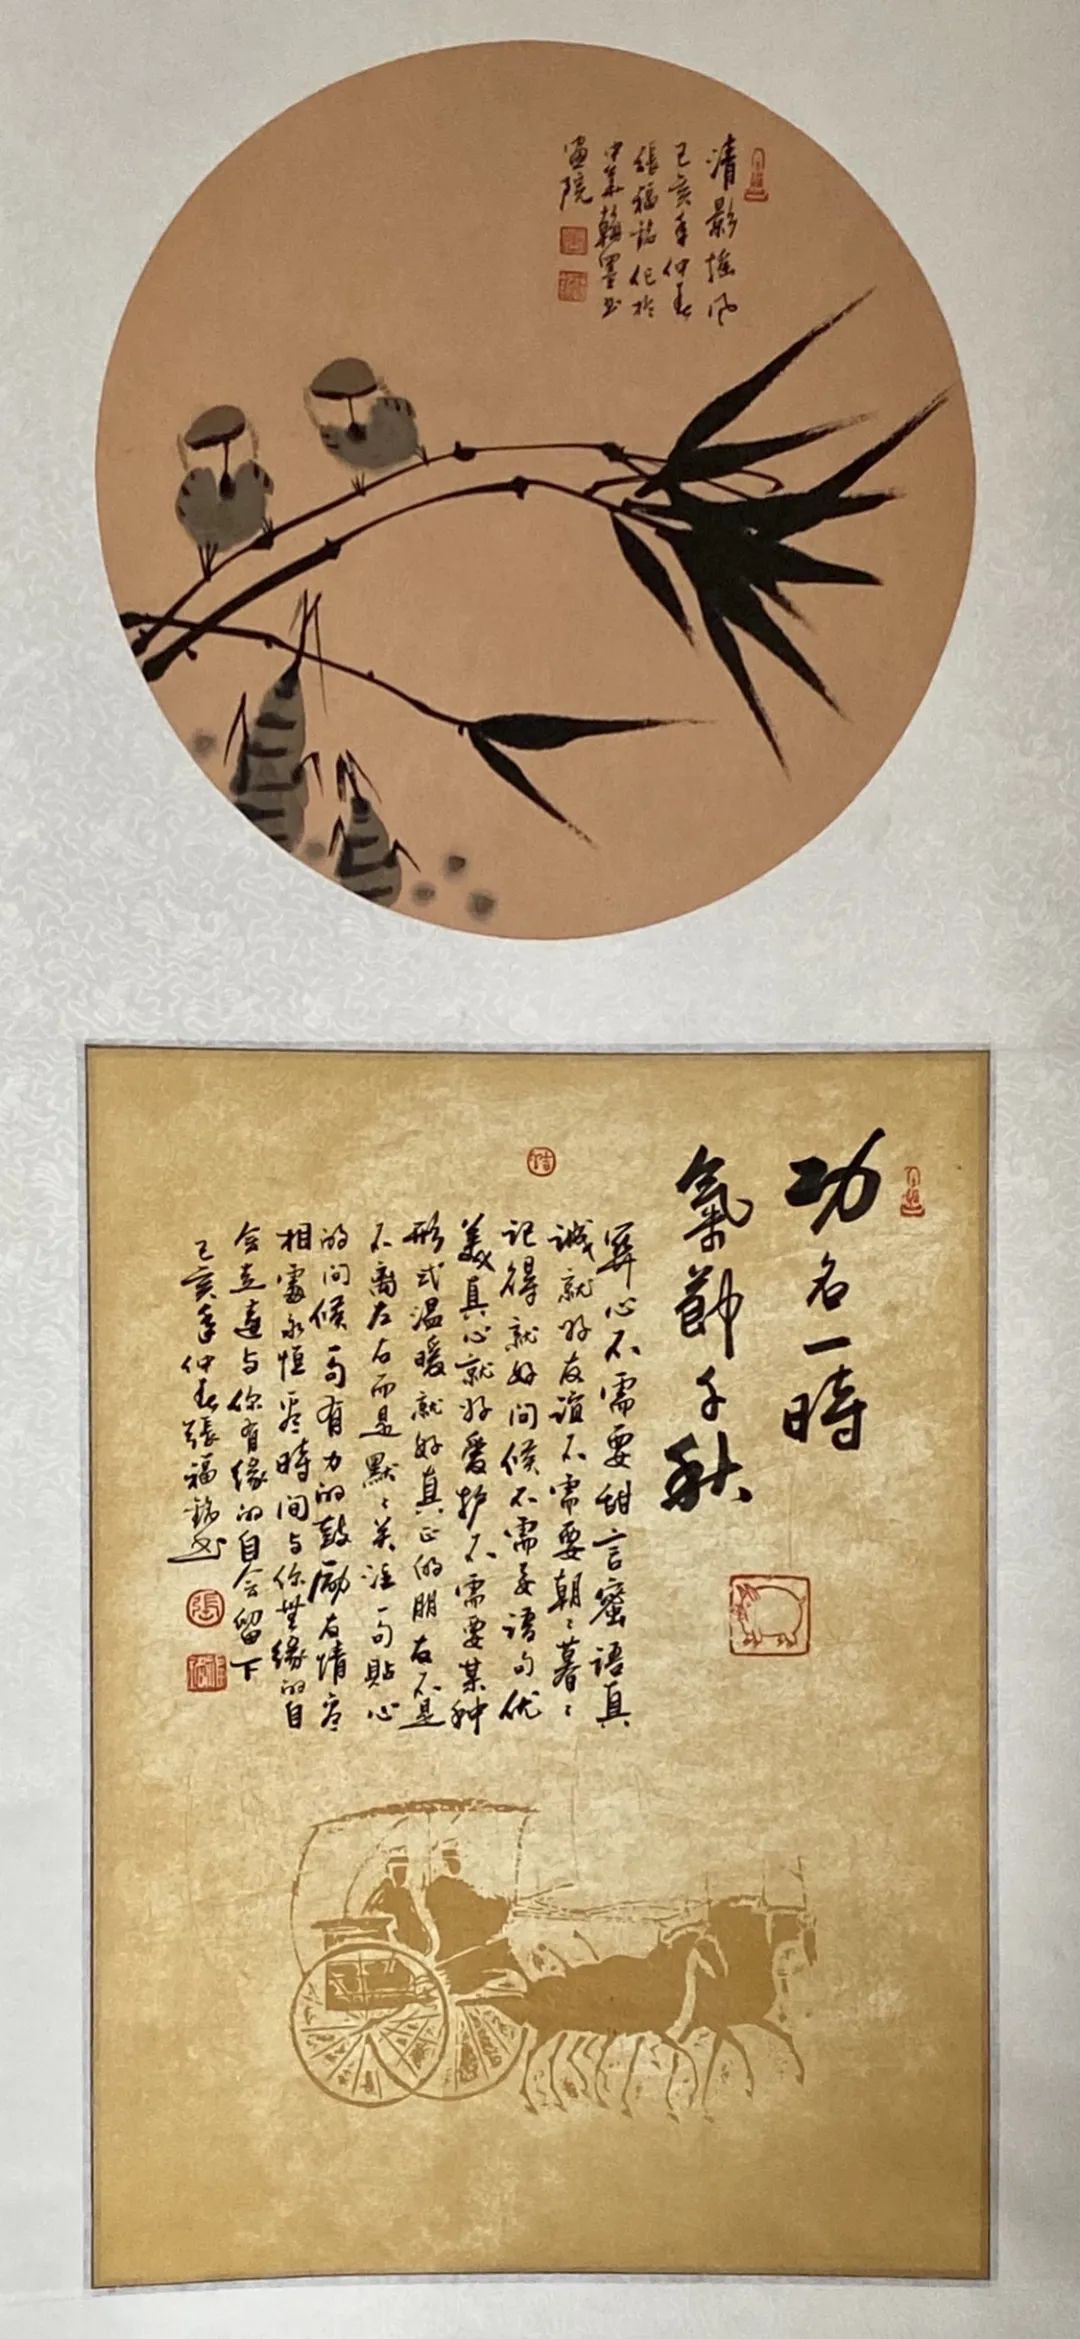 清影搖风
己亥年仲春
張福作於
中華翰墨书
画院
功名一時
氣節千秋
関心不需要甜言蜜语真
诚就好友谊不需要朝々暮々
记得就好问候不需要语句优
美真心就好爱护不需要某种
形式温暖就好真正的朋友不是
不离左右而是默々关注一句貼心
的问候一句有力的鼓励友情
相處永恒時间与你無缘的自
会走遠与你有缘的自会留下
己亥年仲春張福书
張